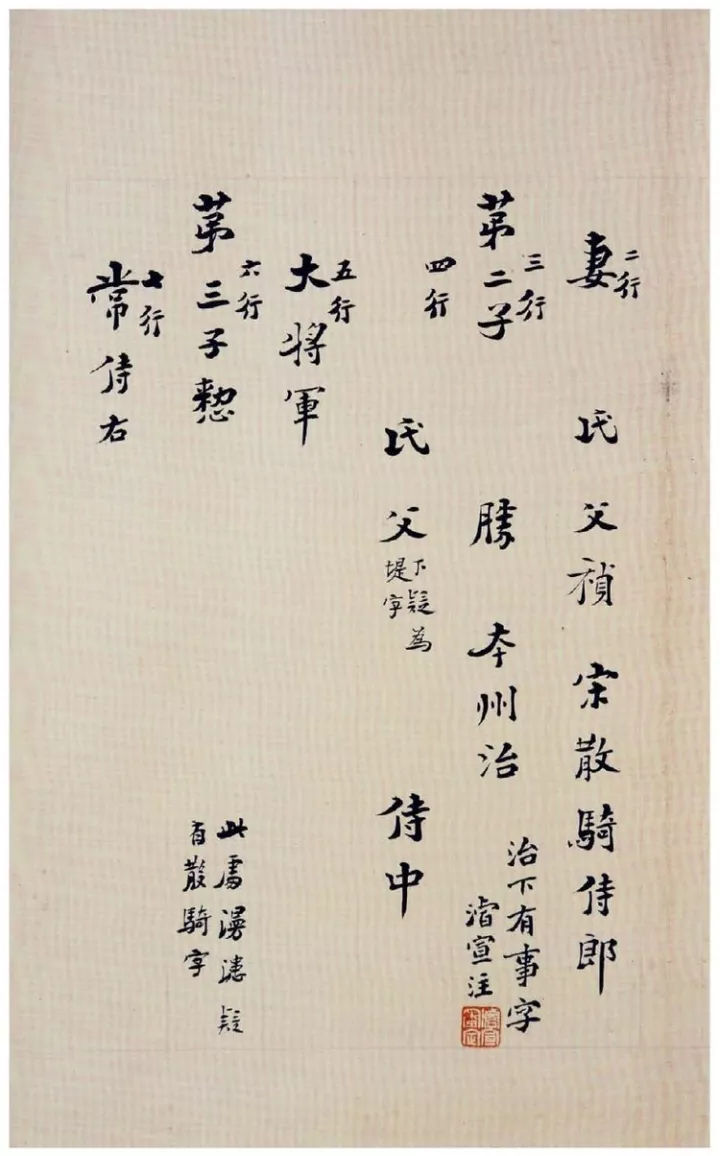 妻 二行 氏 父禎 宋散騎侍郎
第二子 三行 勝 本州治 治下有事字
濬宣注
四行 氏 父 下疑為
堤字 侍中
大將軍 五行
第三子懃 六行 此處漫漶疑
有散騎字
常侍右 七行